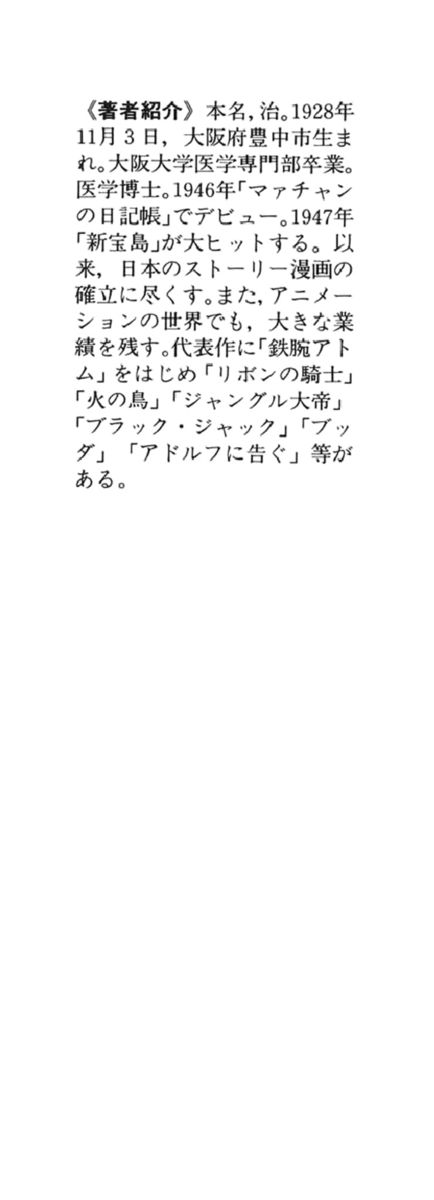 《著者紹介》本名,治。1928年
11月3日, 大阪府豊中市生ま
れ。大阪大学医学専門部卒業。
医学博士。1946年「マァチャン
の日記帳」でデビュー。1947年
「新宝島」が大ヒットする。以
来, 日本のストーリー漫画の
確立に尽くす。また,アニメー
ションの世界でも, 大きな業
績を残す。代表作に「鉄腕アト
ム」をはじめ「リボンの騎士」
「火の鳥」「ジャングル大帝」
「ブラック・ジャック」「ブッ
ダ」「アドルフに告ぐ」等が
ある。